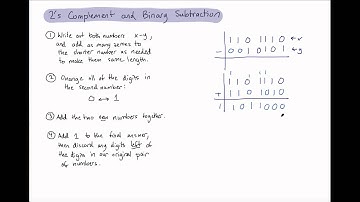 2's Complement and Binary Subtraction
① Write out both numbers x-y,
and add as many zeroes to
the shorter number as needed
to make them same length.
② Change all of the digits in
the second number:
0 ↔ 1
③ Add the two new numbers together.
④ Add 1 to the final answer,
then discard any digits left of
the digits in our original pair
of numbers.
1 1 0 1 1 1 0 ← x
- 0 0 1 0 1 0 1 ← y
1 1 0 1 1 1 0
+ 1 1 0 1 0 1 0
1 1 0 1 1 0 0 0